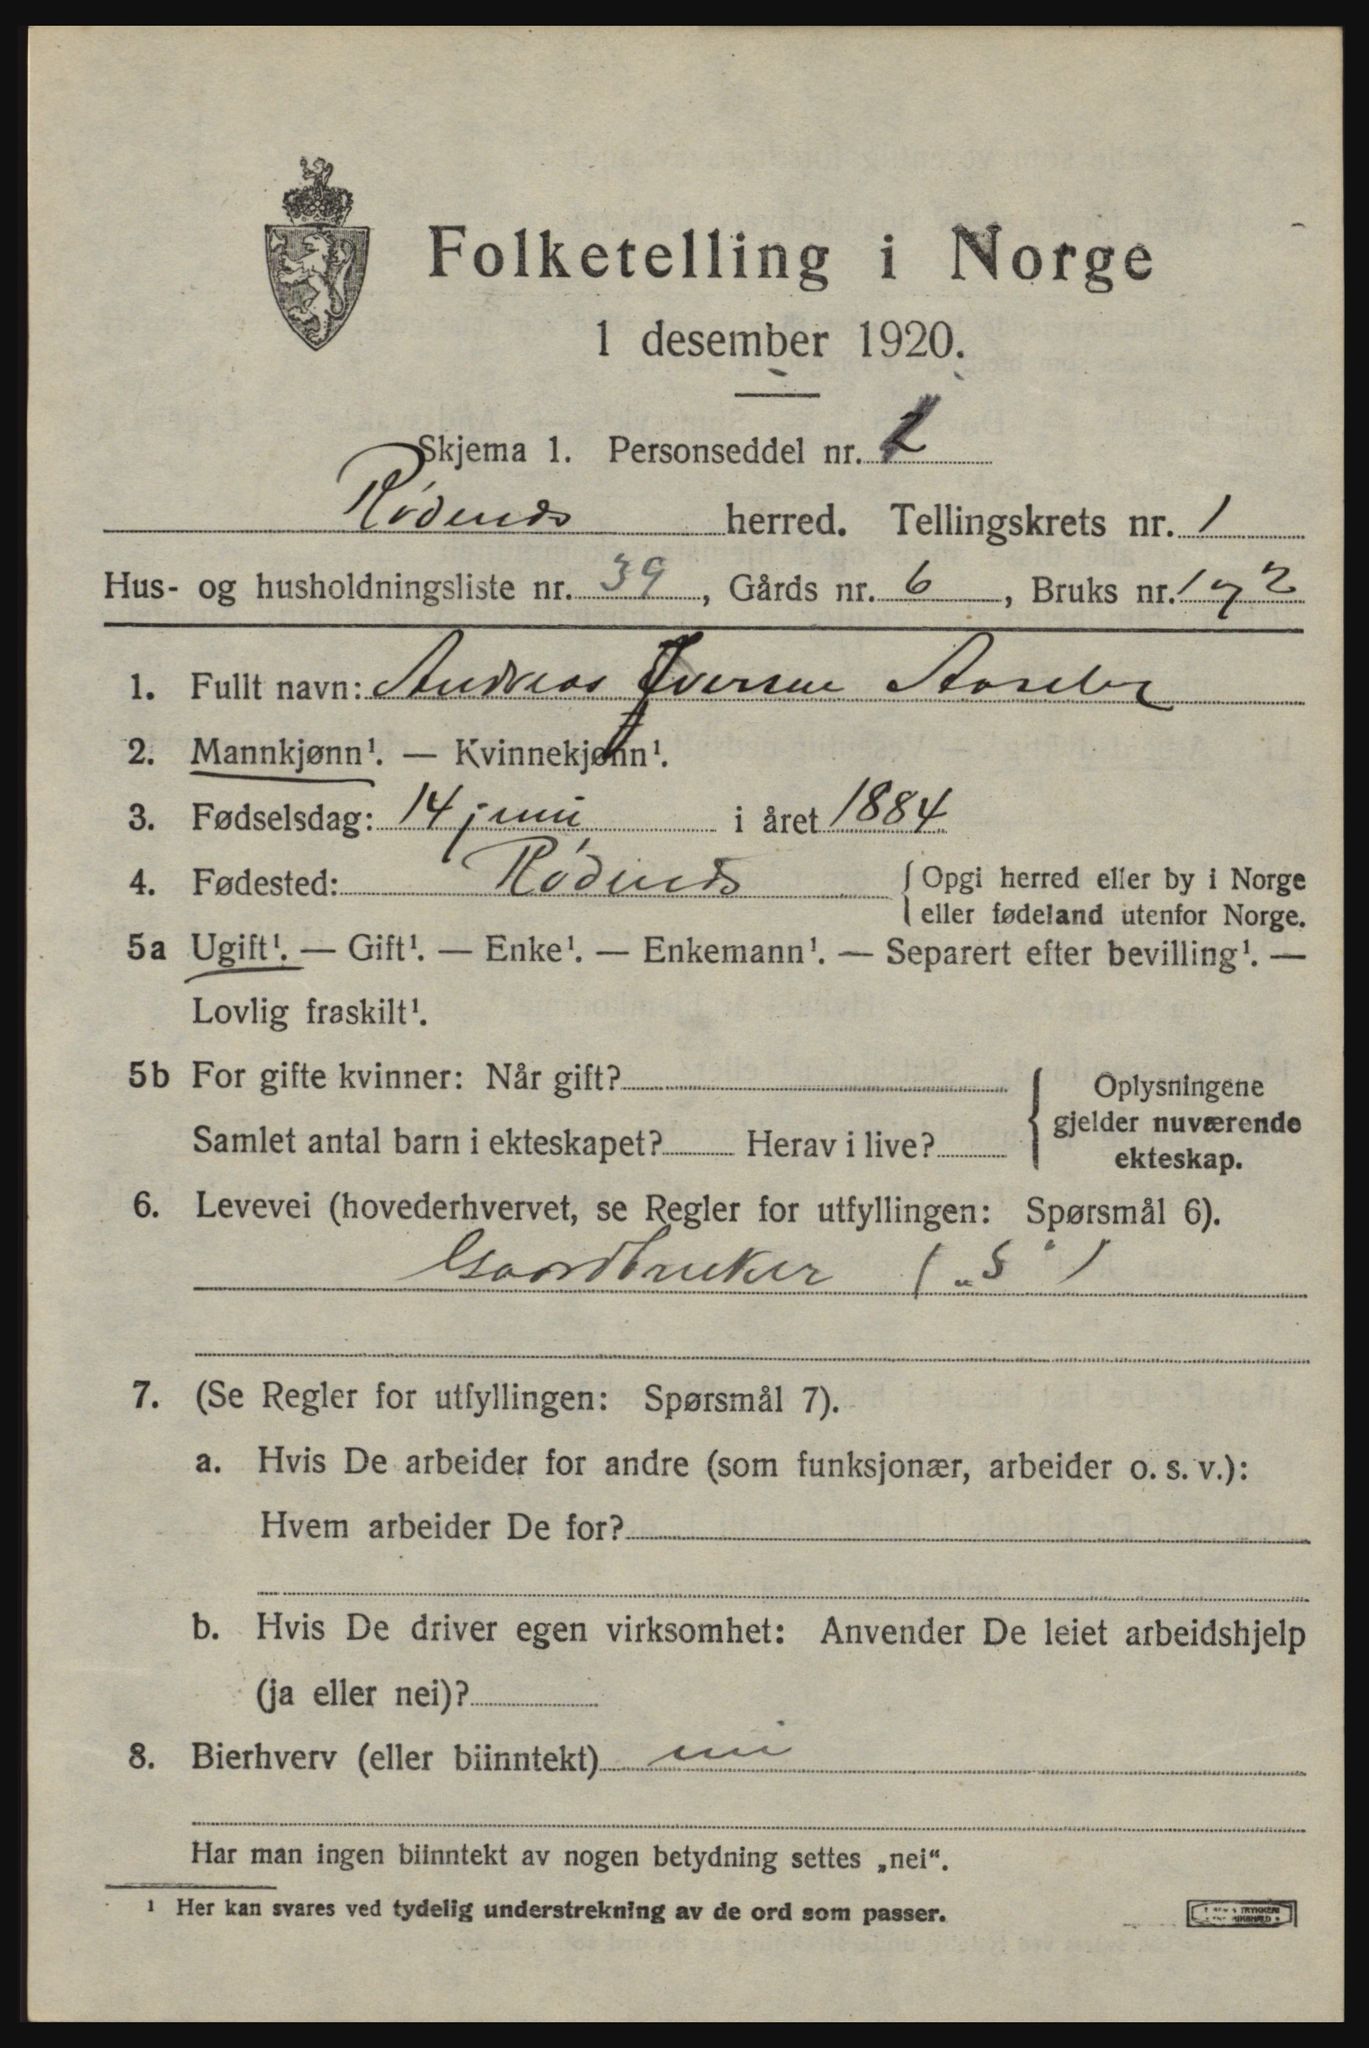 Folketelling i Norge
1 desember 1920.
Skjema 1. Personseddel nr. 2
Rødenes herred. Tellingskrets nr. 1
Hus- og husholdningsliste nr. 39, Gårds nr. 6, Bruks nr. 1 og 2
1. Fullt navn: Andreas Iversen
2. Mannkjønn¹. — Kvinnekjønn¹.
3. Fødselsdag: 14 juni i året 1884
4. Fødested: Rødenes { Opgi herred eller by i Norge
eller fødeland utenfor Norge.
5a Ugift¹. — Gift¹. — Enke¹. — Enkemann¹. — Separert efter bevilling¹. —
Lovlig fraskilt¹.
5b For gifte kvinner: Når gift? { Oplysningene
gjelder nuværende
Samlet antal barn i ekteskapet? Herav i live?
ekteskap.
6. Levevei (hovederhvervet, se Regler for utfyllingen: Spørsmål 6).
Gaardbruker ( „S" )
7. (Se Regler for utfyllingen: Spørsmål 7).
a. Hvis De arbeider for andre (som funksjonær, arbeider o. s. v.):
Hvem arbeider De for?
b. Hvis De driver egen virksomhet: Anvender De leiet arbeidshjelp
(ja eller nei)?
8. Bierhverv (eller biinntekt) nei
Har man ingen biinntekt av nogen betydning settes „nei".
¹ Her kan svares ved tydelig understrekning av de ord som passer.